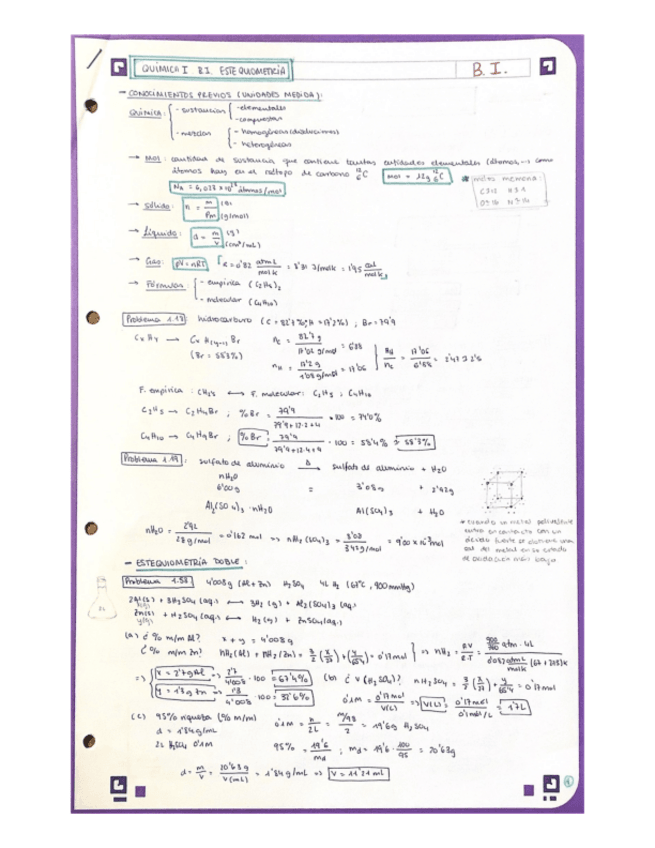 QUÍMICA I. B.I. ESTEQUIOMETRÍA B.I.
→ CONOCIMIENTOS PREVIOS (UNIDADES MEDIDA):
QUÍMICA: - sustancias - elementales
- compuestas
- mezclas - homogéneas (disoluciones)
- heterogéneas
→ Mol: cantidad de sustancia que contiene tantas entidades elementales (átomos, ...) como
átomos hay en el isótopo de carbono ¹²₆C mol = 12g ¹²₆C
Nₐ = 6,023 × 10²³ átomos/mol
→ Sólido: n = m/Pm (g) (g/mol)
→ Líquido: d = m/V (g) (cm³/mL)
→ Gas: pV = nRT R = 0'082 atm·L/mol·K = 8'31 J/mol·K = 1'98 cal/mol·K
→ Fórmulas: - empírica (C₂H₅)₂
- molecular (C₄H₁₀)
Problema 1.18 hidrocarburo (C = 82'7%; H = 17'2%); Br = 79'9
CxHy → CxH(y-1)Br nc = 82'7 g
(Br = 58'3%)
F. empírica: F. molecular: C₂H₅; C₄H₁₀
C₂H₅ → C₂H₄Br; %Br = 79'9 / 79'9+12·2+4 × 100 = 74'0%
C₄H₁₀ → C₄H₉Br; %Br = 79'9 / 79'9+12·4+9 · 100 = 58'4% ≈ 58'3%
Problema 1.19: sulfato de aluminio Δ→ sulfato de aluminio + H₂O
nH₂O
6'00g = 3'08g + 2'92g
Al₂(SO₄)₃ · nH₂O Al(SO₄)₃ + H₂O
* cuando un metal polivalente
entra en contacto con un
ácido fuerte se obtiene una
sal del metal en su estado
de oxidación más bajo
nH₂O = = 0'162 mol ⇒ = 3'08 / 342 g/mol = 9'00 × 10⁻³ mol
- ESTEQUIOMETRÍA DOBLE:
Problema 1.58 4'008g (Al + Zn) H₂SO₄ 4L H₂ (67°C, 900mmHg)
2Al(s) + 3H₂SO₄ (aq.) → 3H₂ (g) + Al₂(SO₄)₃ (aq.)
Zn(s) + H₂SO₄ (aq.) → H₂ (g) + ZnSO₄ (aq.)
(a) ¿% m/m Al? x + y = 4'008g
¿% m/m Zn? nH₂(Al) + nH₂(Zn) = 3/2 (x/27) + (y/65'4) = 0'17mol
⇒ x = 2'7 g Al ⇒ 2'7/4'008 · 100 = 67'4%
y = 1'3 g Zn ⇒ 1'3/4'008 · 100 = 32'6%
(b) ¿V (H₂SO₄)? nH₂SO₄ = 3/2 (x/27) + y/65'4 = 0'17mol
0'1M = 0'17mol/V(L) ⇒ V(L) = 0'17mol / 0'1mol/L = 1'7L
(c) 95% riqueza (% m/m) 0'1M = n/2L = (m/98)/2 = 19'6g H₂SO₄
d = 1'84g/mL
2L H₂SO₄ 0'1M 95% = 19'6/md; md = 19'6 · 100/95 = 20'63g
d = m/V = 20'63g/V(mL) = 1'84 g/mL ⇒ V = 11'21 mL
1